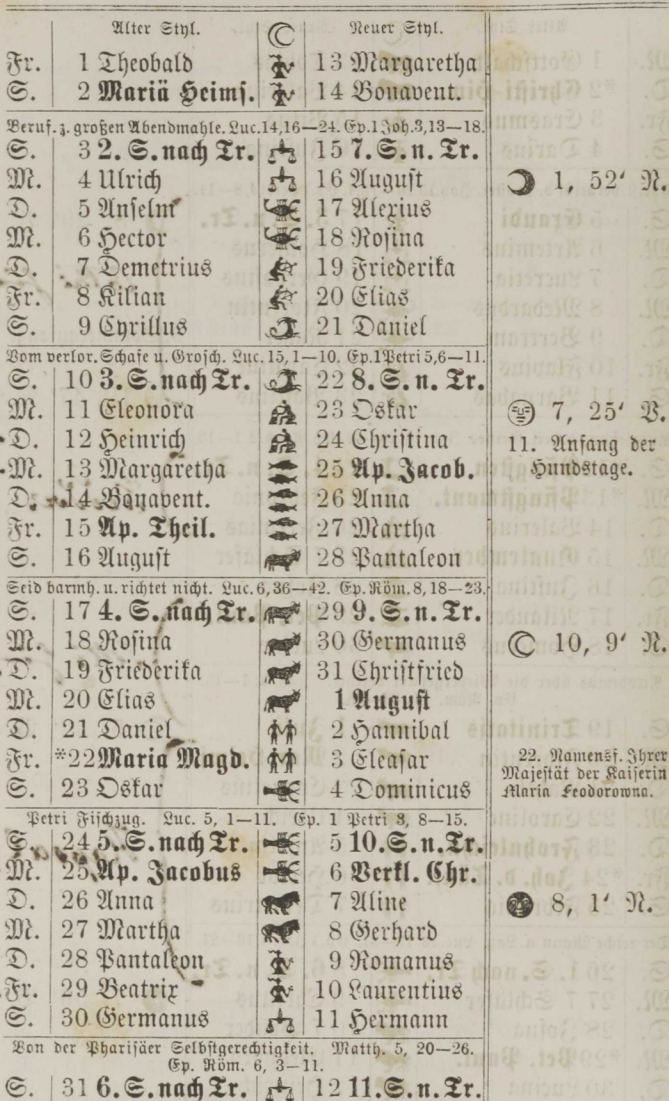 Alter Styl. Neuer Styl.
Fr. 1 Theobald 13 Margaretha
S. 2 Mariä Heims. 14 Bonavent.
Beruf. z. großen Abendmahle. Luc. 14, 16—24. Ep. 1 Joh. 3, 13—18.
S. 3 2. S. nach Tr. 15 7. S. n. Tr.
M. 4 Ulrich 16 August ☽ 1, 52′ N.
D. 5 Anselm 17 Alexius
M. 6 Hector 18 Rosina
D. 7 Demetrius 19 Friederika
Fr. 8 Kilian 20 Elias
S. 9 Cyrillus 21 Daniel
Vom verlor. Schafe u. Grosch. Luc. 15, 1—10. Ep. 1 Petri 5, 6—11.
S. 10 3. S. nach Tr. 22 8. S. n. Tr.
M. 11 Eleonora 23 Oskar 7, 25′ V.
D. 12 Heinrich 24 Christina 11. Anfang der
M. 13 Margaretha 25 Ap. Jacob. Hundstage.
D. 14 Bonavent. 26 Anna
Fr. 15 Ap. Theil. 27 Martha
S. 16 August 28 Pantaleon
Seid barmh. u. richtet nicht. Luc. 6, 36—42. Ep. Röm. 8, 18—23.
S. 17 4. S. nach Tr. 29 9. S. n. Tr.
M. 18 Rosina 30 Germanus ☾ 10, 9′ N.
D. 19 Friederika 31 Christfried
M. 20 Elias 1 August
D. 21 Daniel 2 Hannibal
Fr. *22 Maria Magd. 3 Eleasar 22. Namensf. Ihrer
Majestät der Kaiserin
S. 23 Oskar 4 Dominicus Maria Feodorowna.
Petri Fischzug. Luc. 5, 1—11. Ep. 1 Petri 3, 8—15.
S. 24 5. S. nach Tr. 5 10. S. n. Tr.
M. 25 Ap. Jacobus 6 Verkl. Chr.
D. 26 Anna 7 Aline 8, 1′ N.
M. 27 Martha 8 Gerhard
D. 28 Pantaleon 9 Romanus
Fr. 29 Beatrix 10 Laurentius
S. 30 Germanus 11 Hermann
Von der Pharisäer Selbstgerechtigkeit. Matth. 5, 20—26.
Ep. Röm. 6, 3—11.
S. 31 6. S. nach Tr. 12 11. S. n. Tr.